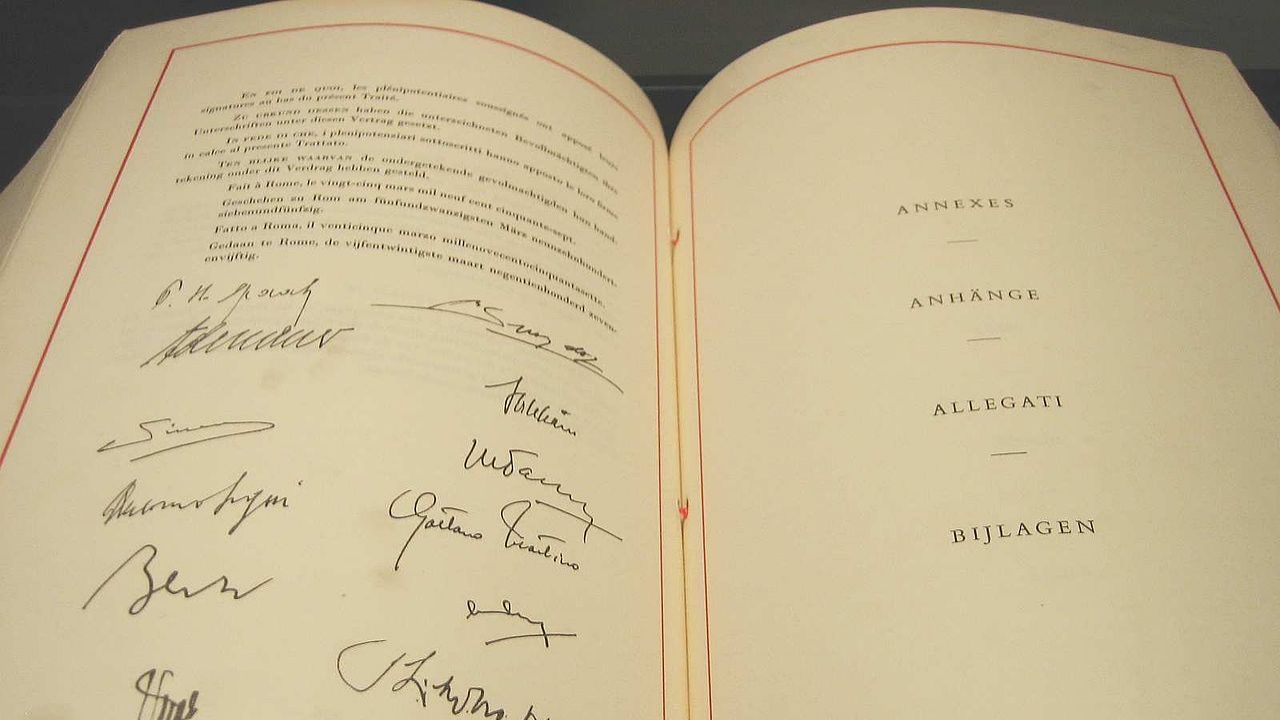 EN FOI DE QUOI, les plénipotentiaires soussignés ont apposé leurs
signatures au bas du présent Traité.
ZU URKUND DESSEN haben die unterzeichneten Bevollmächtigten ihre
Unterschriften unter diesen Vertrag gesetzt.
IN FEDE DI CHE, i plenipotenziari sottoscritti hanno apposto le loro firme
in calce al presente Trattato.
TEN BLIJKE WAARVAN de ondergetekende gevolmachtigden hun hand-
tekening onder dit Verdrag hebben gesteld.
Fait à Rome, le vingt-cinq mars mil neuf cent cinquante-sept.
Geschehen zu Rom am fünfundzwanzigsten März neunzehnhundert-
siebenundfünfzig.
Fatto a Roma, il venticinque marzo millenovecentocinquantasette.
Gedaan te Rome, de vijfentwintigste maart negentienhonderd zeven-
envijftig.
P. H. Spaak
Adenauer
Gaetano Martino
ANNEXES
ANHÄNGE
ALLEGATI
BIJLAGEN